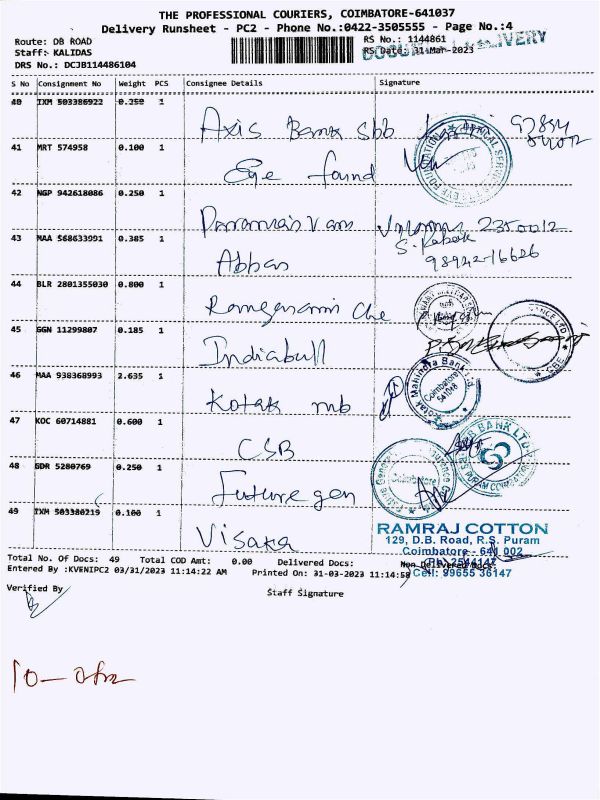 THE PROFESSIONAL COURIERS, COIMBATORE-641037
Delivery Runsheet - PC2 - Phone No.:0422-3505555 - Page No.:4
Route: DB ROAD
RS No.: 1144861
Staff: KALIDAS
RS Date: 31-Mar-2023
DRS No.: DCJB114486104
S No Consignment No Weight PCS Consignee Details Signature
40 IXM 503386922 0.250 1
Axis Bank sbb
41 MRT 574958 0.100 1
Eye found
42 NGP 942618086 0.250 1
2350012
43 MAA 568633991 0.385 1
Abbas
98942-16626
44 BLR 2801355030 0.800 1
45 GGN 11299807 0.185 1
Indiabull
46 MAA 938368993 2.635 1
Kotak mb
Kotak Mahindra Bank Ltd
Coimbatore
47 KOC 60714881 0.600 1
CSB
CSB BANK LTD
48 GDR 5280769 0.250 1
Future gen
49 IXM 503380219 0.100 1
Visaka
RAMRAJ COTTON
129, D.B. Road, R.S. Puram
Coimbatore - 641 002
Total No. Of Docs: 49 Total COD Amt: 0.00 Delivered Docs: Non Delivered Docs:
Entered By :KVENIPC2 03/31/2023 11:14:22 AM Printed On: 31-03-2023 11:14:58
Cell: 99655 36147
Verified By
Staff Signature